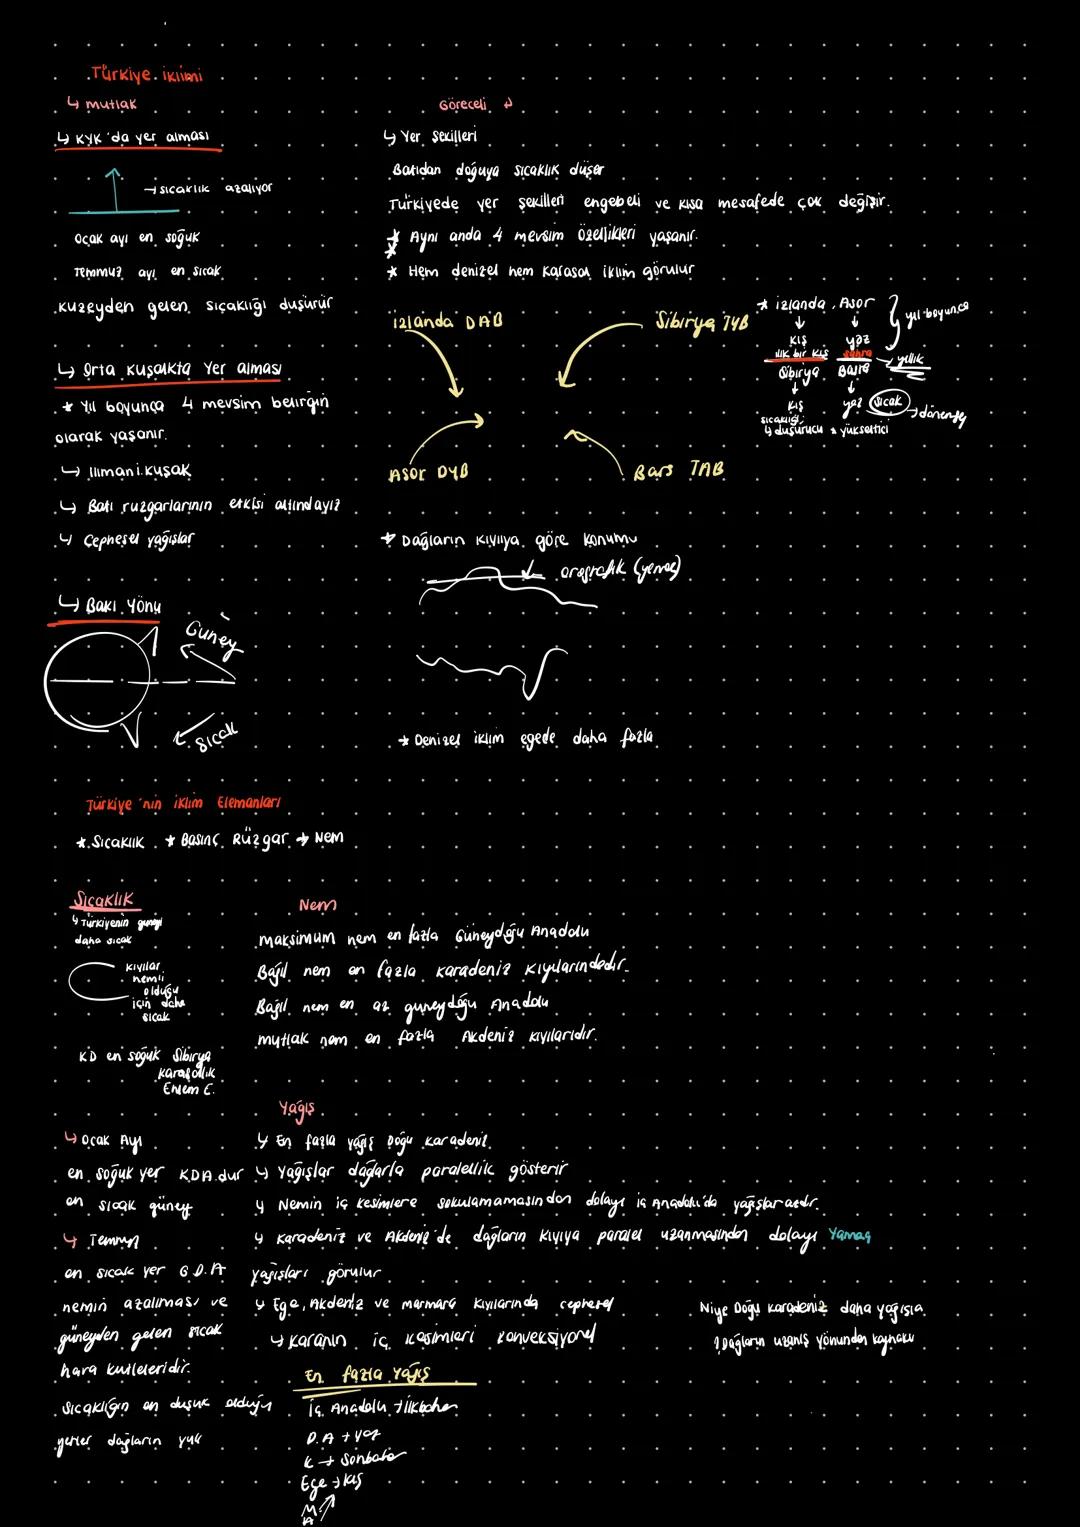 Türkiye iklimi
↳ mutlak
↳ KYK'da yer alması
→ sıcaklık azalıyor
Ocak ayı en soğuk
Temmuz ayı en sıcak
kuzeyden gelen sıcaklığı düşürür
↳ Orta kuşakta yer alması
* Yıl boyunca 4 mevsim belirgin
olarak yaşanır.
↳ ılıman i. kuşak
↳ Batı rüzgarlarının etkisi altındayız
↳ Cephesel yağışlar
↳ Bakı yönü
Güney
sıcak
Göreceli ↲
↳ Yer şekilleri
Batıdan doğuya sıcaklık düşer
Türkiyede yer şekilleri engebeli ve kısa mesafede çok değişir.
* Aynı anda 4 mevsim özellikleri yaşanır.
*
* Hem denizel hem karasal iklim görülür
izlanda DAB
Sibirya TYB
Asor DYB
Bars TAB
* izlanda, Asor
↓ ↓
kış yaz
yıl boyunca
ılık bir kış
→ yıllık
Sibirya Basra
↓ ↓
kış yaz sıcak → dönence
sıcaklığı
↳ düşürücü * yükseltici
* Dağların kıyıya göre konumu
orografik (yamaç)
* Denizel iklim egede daha fazla
Türkiye'nin iklim Elemanları
* Sıcaklık * Basınç Rüzgar → Nem
Sıcaklık
↳ Türkiyenin güneyi
daha sıcak
kıyılar
nemli
olduğu
için daha
sıcak
KD en soğuk Sibirya
karasallık
Enlem E.
↳ Ocak Ayı
en soğuk yer KDA.dur
en sıcak güney
↳ Temmuz
en sıcak yer G.D.A
nemin azalması ve
güneyden gelen sıcak
hava kütleleridir.
sıcaklığın en düşük olduğu
yerler dağların yük
Nem
maksimum nem en fazla Güneydoğu Anadolu
Bağıl nem en fazla karadeniz kıyılarındadır.
Bağıl nem en az güneydoğu Anadolu
mutlak nem en fazla Akdeniz kıyılarıdır.
Yağış
↳ En fazla yağış Doğu karadeniz.
↳ Yağışlar dağlarla paralellik gösterir
↳ Nemin iç kesimlere sokulamamasından dolayı iç Anadolu'da yağışlar azdır.
↳ Karadeniz ve Akdeniz'de dağların kıyıya paralel uzanmasından dolayı Yamaç
yağışları görülür.
↳ Ege, Akdeniz ve marmara kıyılarında cephesel
↳ karanın iç kesimleri konveksiyonel
Niye Doğu karadeniz daha yağışlı
? Dağların uzanış yönünden kaynaklı
En fazla yağış
İç Anadolu → ilkbahar
D.A → yaz
K → Sonbahar
Ege → kış
M
A